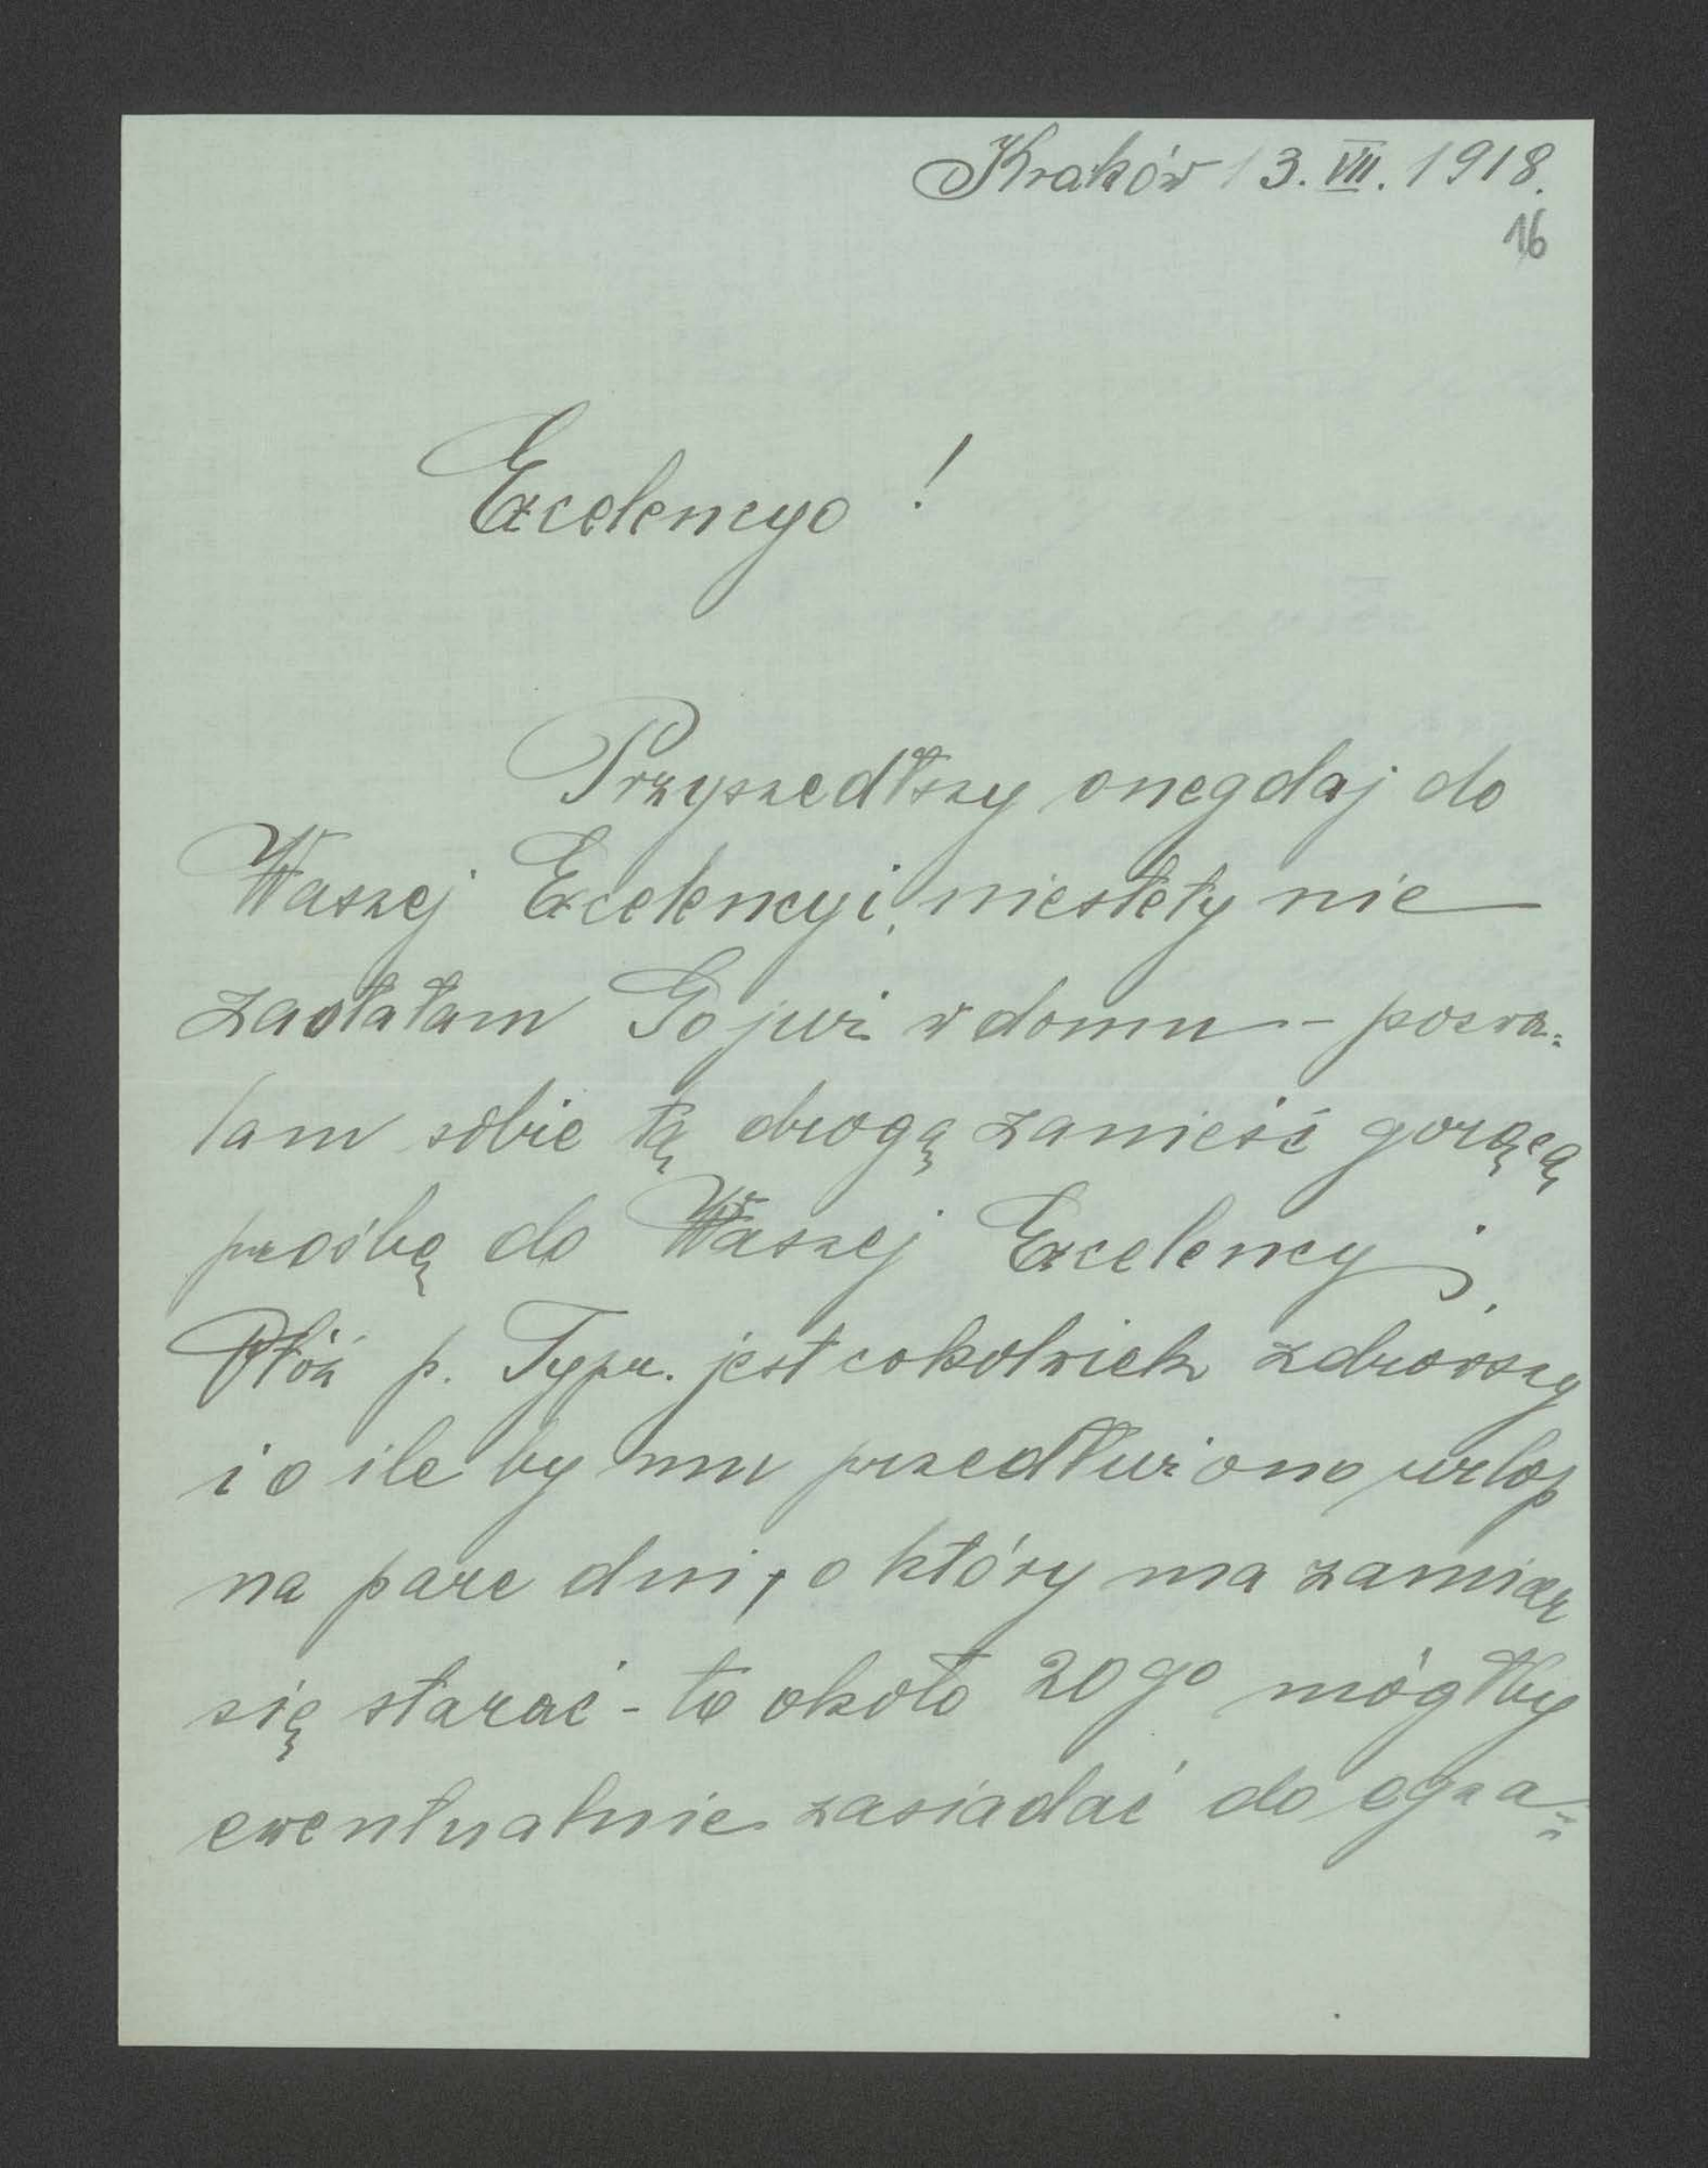 Kraków 13. VII. 1918.
16
Excelencyo!
Przyszedłszy onegdaj do
Waszej Excelencyi, niestety nie
zastałam Go już w domu – pozwa=
lam sobie tą drogą zanieść gorącą
prośbę do Waszej Excelencyi,
Otóż p. Typr. jest cokolwiek zdrowszy
i o ile by mu przedłużono urlop
na parę dni, o który ma zamiar
się starać – to około 20go mógłby
ewentualnie zasiadać do egza=